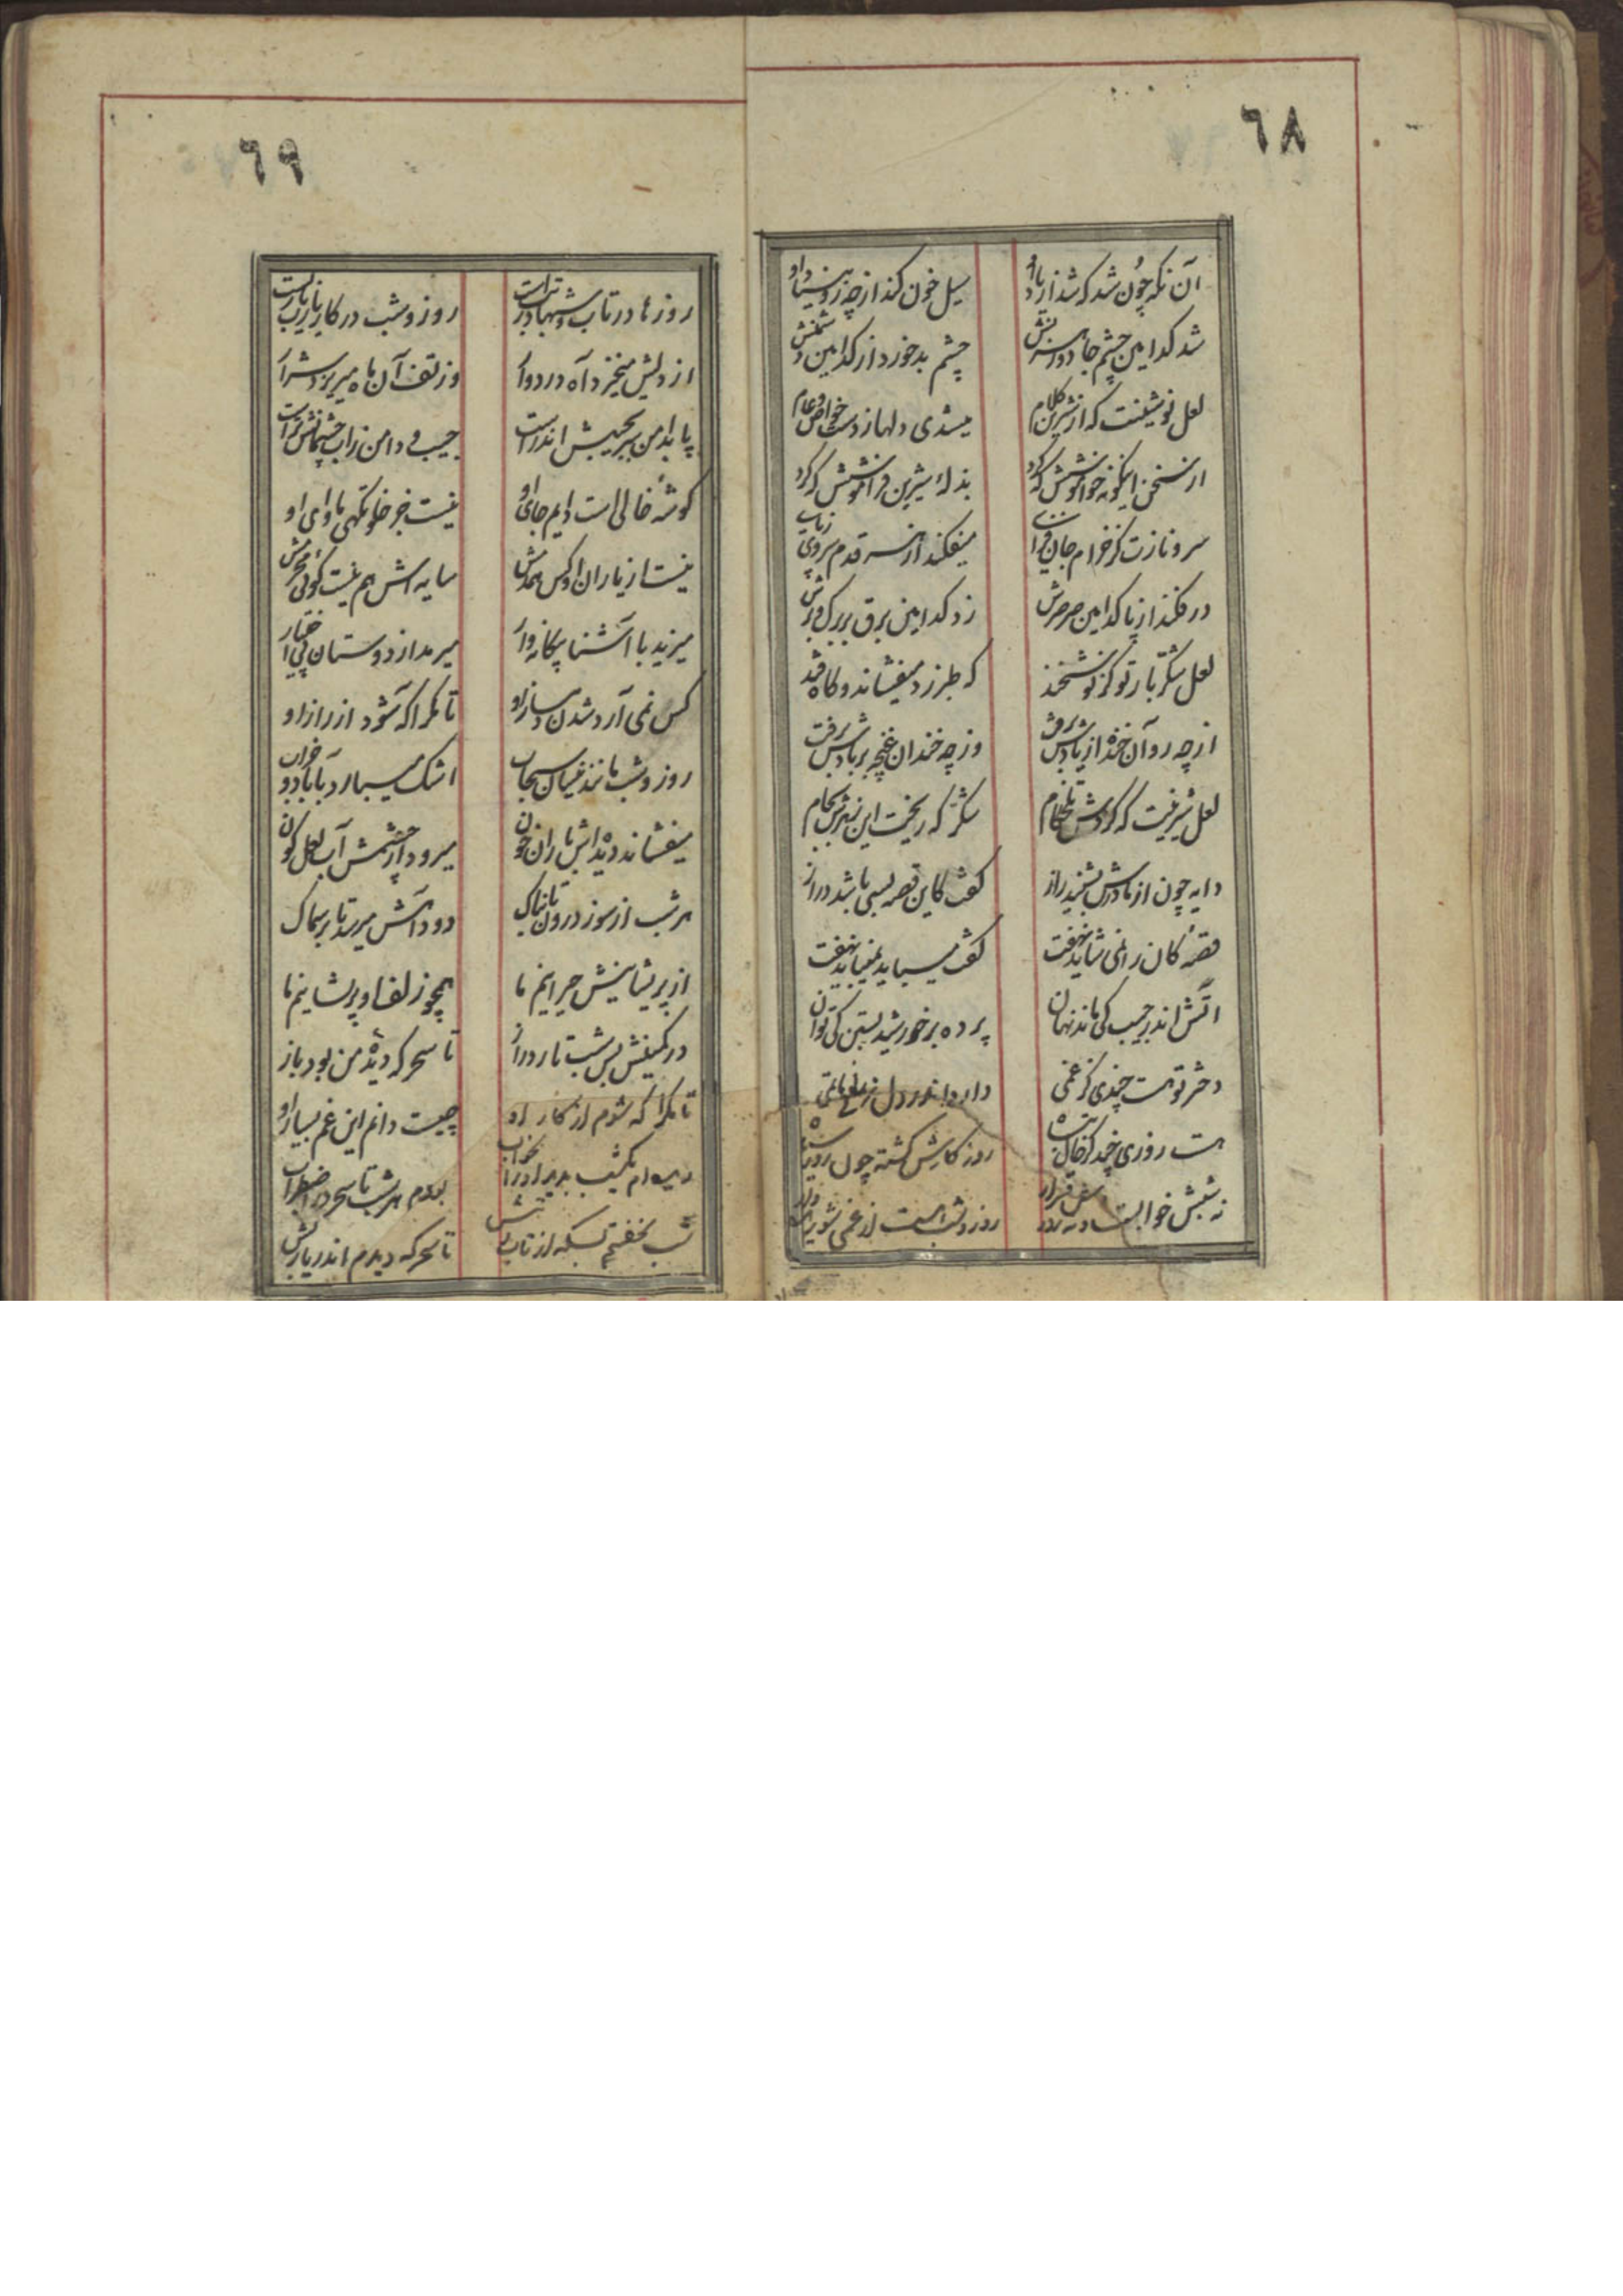 ٦٨
آن نگه چون شد که شد از یاد او
سیل خون کند از چه رو بنیاد او
شد کدامین چشم جادو رهزنش
چشم بد خورد از کدامین دشمنش
لعل نوشینت که از شیرین کلام
میشدی دلها ز دست خواص و عام
از سخن اینگونه خواموشش که کرد
بذلهٔ شیرین فراموشش که کرد
سرو نازت کز خرام جان فزای
میفکند از هر قدم سروی ز پای
در فکند از پا کدامین صرصرش
زد کدامین برق بر برگ و برش
لعل شکر بار تو کز نوشخند
که طبرزد میفشاند و گاه قند
از چه رو آن خنده از یادش برفت
وز چه خندان غنچه بر بادش برفت
لعل شیرینت که کردش تلخکام
شکر که ریخت این زهرش بجام
دایه چون از مادرش بشنید راز
گفت کاین قصه بسی باشد دراز
قصهٔ کان را نمی شاید نهفت
گفت میباید نمیباید نهفت
آتش اندر جیب کی ماند نهان
پرده بر خورشید بستن کی توان
دختر تو هست چندی کز غمی
دارد اندر دل ماتمی
هست روزی چند کز خال سیاه
روز کارش گشته چون سیاه
نه شبش خوابست و نه روزش قرار
روز و شب است از غمی شوریده
٦٩
روزها در تاب و شبها در تبست
روز و شب در کار یارب یاربست
از دلش میخیزد آه دردوار
وز تف آن آه میریزد شرار
پا بدامن سر بجیبش اندر است
جیب و دامن ز آب چشمانش تر است
گوشهٔ خالی است دایم جای او
نیست جز خلوتگهی ماوای او
نیست از یاران او کس همدمش
سایه اش هم نیست گوئی محرمش
میزید با آشنا بیگانه وار
میرمد از دوستان بی اختیار
کس نمی آرد شدن دمساز او
تا مگر آگه شود از راز او
روز و شب مانند نیسان سحاب
اشک میبارد
میفشاند دیده اش باران خون
میرود از چشمش آب لعل گون
هر شب از سوز درون تابناک
دود آهش میرسد تا بر سماک
از پریشانیش حیرانیم ما
همچو زلف او پریشانیم ما
در کمینش بس شب تار دراز
تا سحر که دیدهٔ من بود باز
تا مگر آگه شوم از کار او
چیست دانم این غم بسیار او
دیده ام یکشب ندید او را بخواب
بودم هر شب تا سحر در اضطراب
شب نخفتم بسکه از تاب تبش
تا سحر که دیدم اندر یاربش